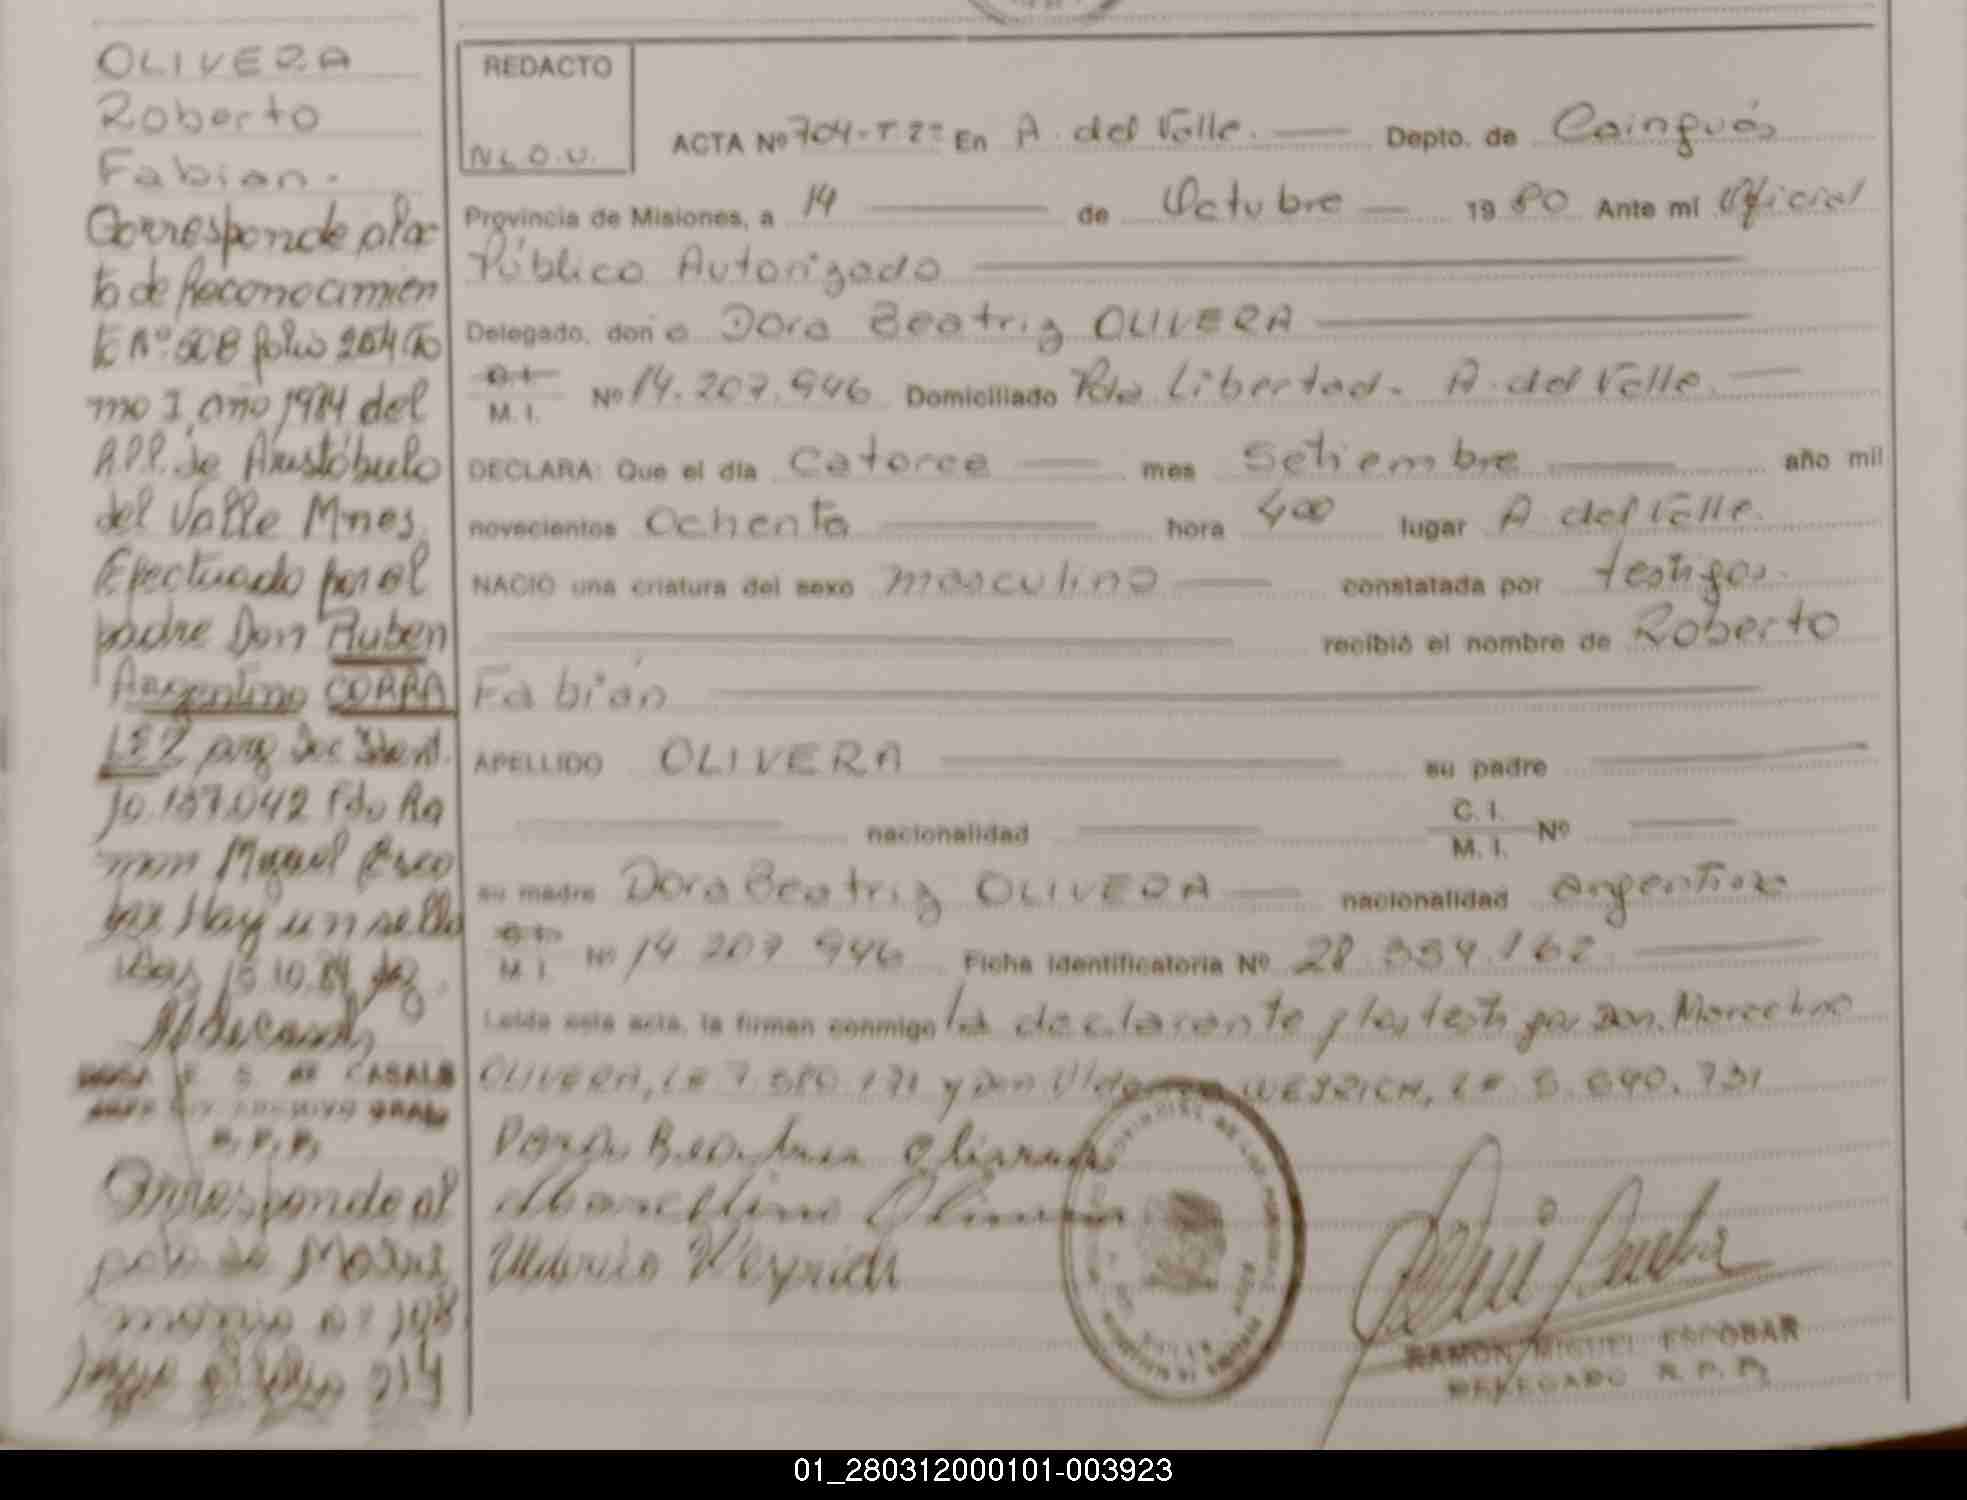 OLIVERA
Roberto
Fabian.
Corresponde al ac
to de Reconocimien
to Nº 508 folio 254 To
mo I, año 1984 del
R.P.P. de Aristóbulo
del Valle Mnes.
Efectuado por el
padre Don Ruben
Argentino CORRA
LEZ arg Doc Ident.
10.187.042 Fdo Ra
mon Miguel Esco
bar Hay un sello
Pdas, 15.10.84
DE CASALS
ARCHIVO GRAL
R.P.P.
Corresponde al
REDACTO
N L O. U.
ACTA Nº 704-T.2º En A. del Valle. Depto. de Cainguás
Provincia de Misiones, a 14 de Octubre 19 80 Ante mi Oficial
Público Autorizado
Delegado, don a Dora Beatriz OLIVERA
C.I.
M. I. Nº 14.207.946 Domiciliado Pdo Libertad. A. del Valle.
DECLARA: Que el día Catorce mes Setiembre año mil
novecientos Ochenta hora 400 lugar A del Valle.
NACIO una criatura del sexo masculino constatada por testigos.
recibió el nombre de Roberto
Fabián
APELLIDO OLIVERA su padre
nacionalidad C. I.
M. I. Nº
su madre Dora Beatriz OLIVERA nacionalidad argentina
C.I.
M. I. Nº 14 207 946 Ficha Identificatoria Nº 28.354.162
Leída esta acta, la firman conmigo la declarante y los testigos Don. Marcelino
OLIVERA, LE 7.580.171 y Don WEYRICH, LE 8.690.731
Marcelino
Weyrich
RAMON MIGUEL ESCOBAR
DELEGADO R.P.P.
01_280312000101-003923